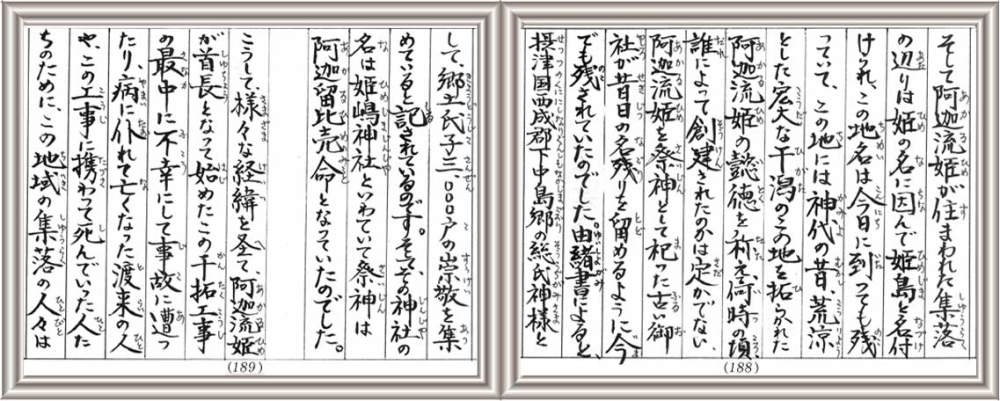 そして阿迦流姫が住まわれた集落
の辺りは姫の名に因んで姫島と名付
けられ、この地名は今日に到っても残
っていて、この地には神代の昔、荒涼
とした宏大な干潟のこの地を拓かれた
阿迦流姫の懿徳を称え、何時の頃
誰によって創建されたのかは定かでない、
阿迦流姫を祭神として祀った古い御
社が昔日の名残りを留めるように、今
でも残されていたのでした。由緒書によると、
摂津国西成郡下中島郷の総氏神様と
(188)
して、郷土氏子三、〇〇〇戸の崇敬を集
めていると記されているのです。そしてその神社の
名は姫嶋神社といわていて祭神は
阿迦留比売命となっていたのでした。
こうして様々な経緯を圣て、阿迦流姫
が首長となって始めたこの干拓工事
の最中に不幸にして事故に遭っ
たり、病に仆れて亡くなった渡来の人
や、この工事に携わって死んでいった人た
ちのために、この地域の集落の人々は
(189)